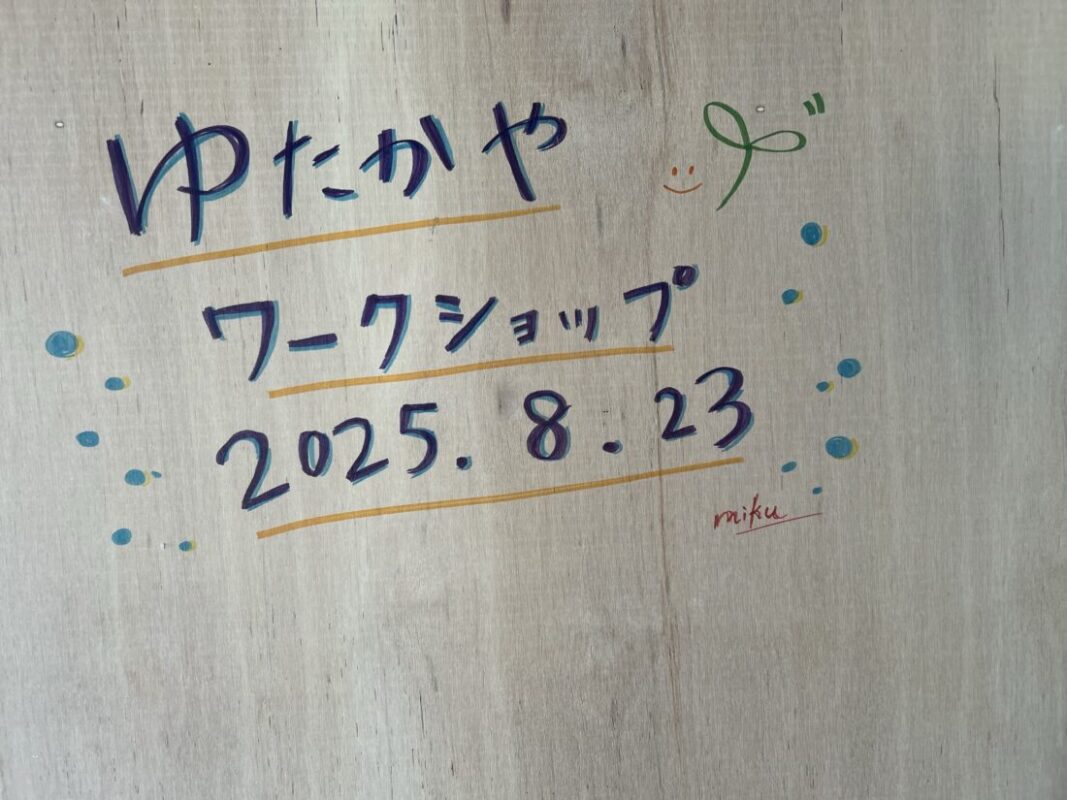 ゆたかや
ワークショップ
2025.8.23
miku